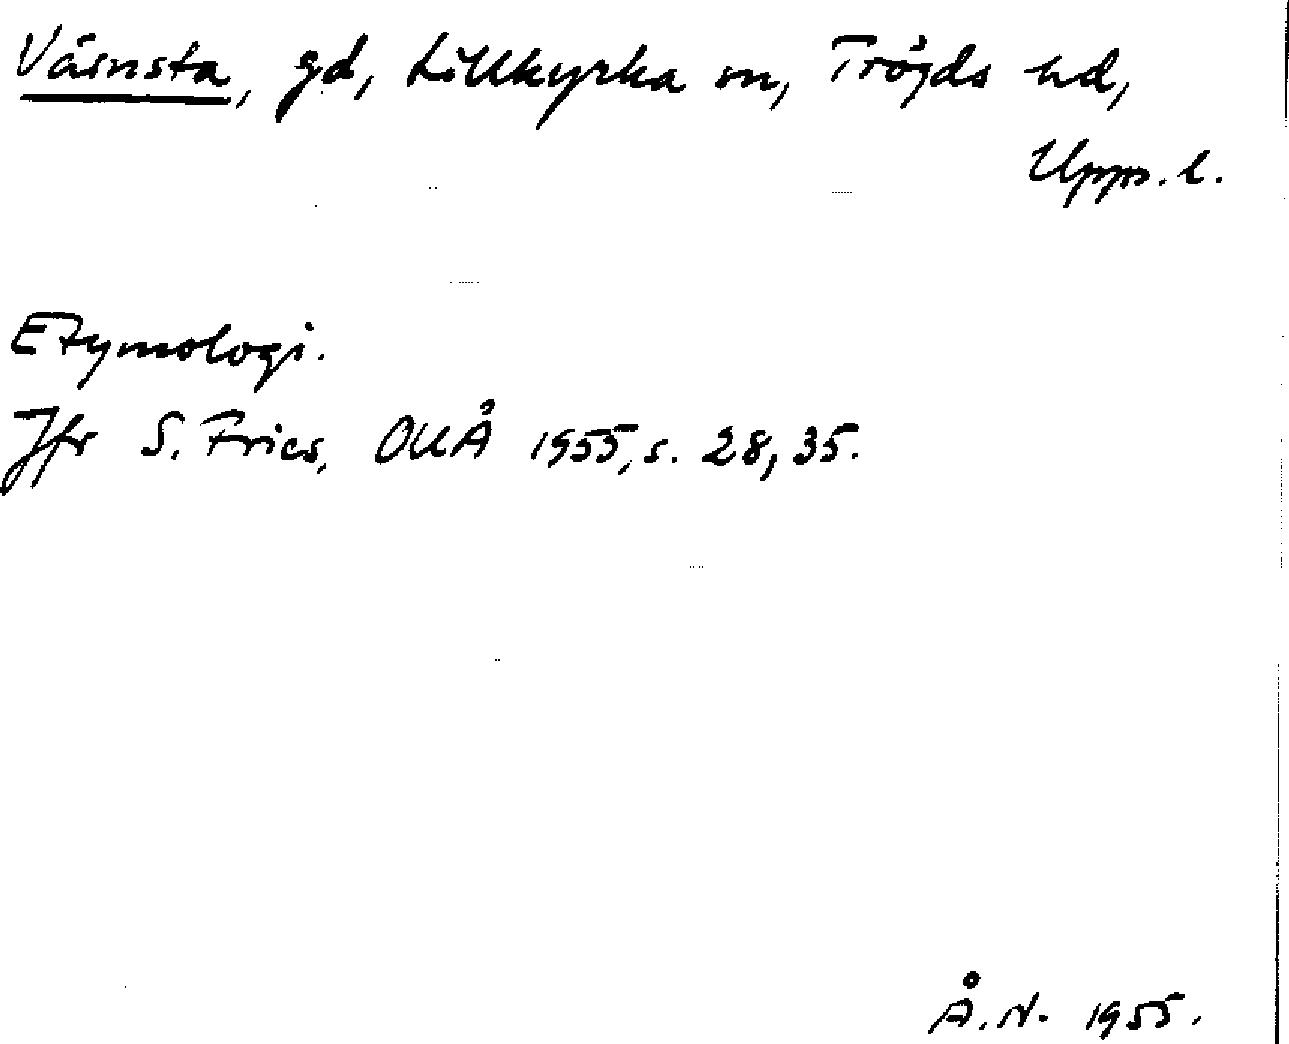 Väsnsta, gd, Lillkyrka sn, Trögds hd,
Upps. l.
Etymologi.
Jfr S. Fries, OUÅ 1955, s. 28, 35.
Å. N. 1955.